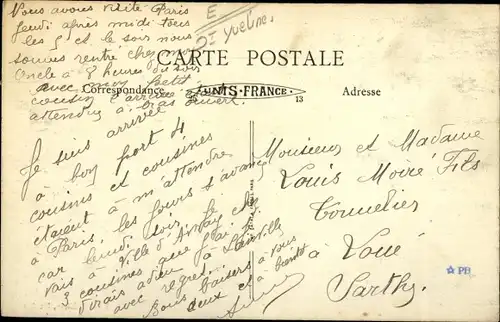 Nous avons visité Paris
jeudi après midi tous
les 5 et le soir nous
sommes rentré chez mon
oncle à 8 heures du soir
avec mon petit
cousin l'arrivée
attendu à bras ouvert.
E
Dt Yvelines
CARTE POSTALE
Correspondance
UNIS-FRANCE
13
Adresse
Je suis arrivée
à bon port 4
cousins et cousines
étaient à m'attendre
à Paris, les jours s'avance
car lundi soir, je
vais à Ville d'Avray chez
3 cousines que
dirais adieu à
avec regret.
Bons baisers à vous
deux et à bientôt
Monsieur et Madame
Louis Moiré Fils
Tonnelier
à Loué
Sarthe.
PB